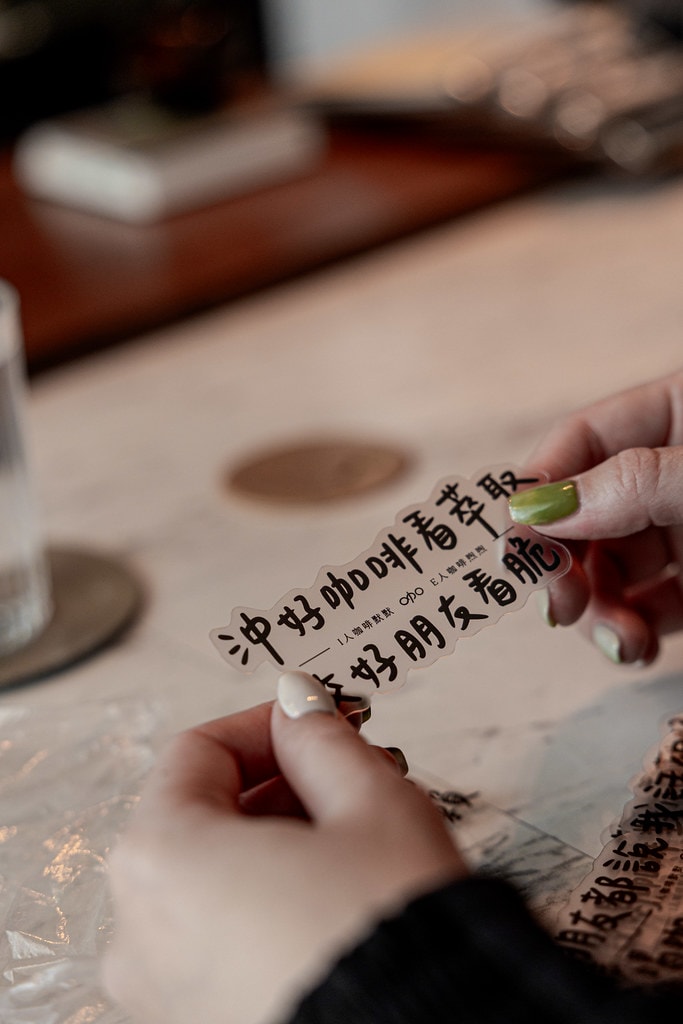 沖好咖啡看萃取
I人咖啡默默 ojo E人咖啡煦煦
好朋友看脆
朋友都說我